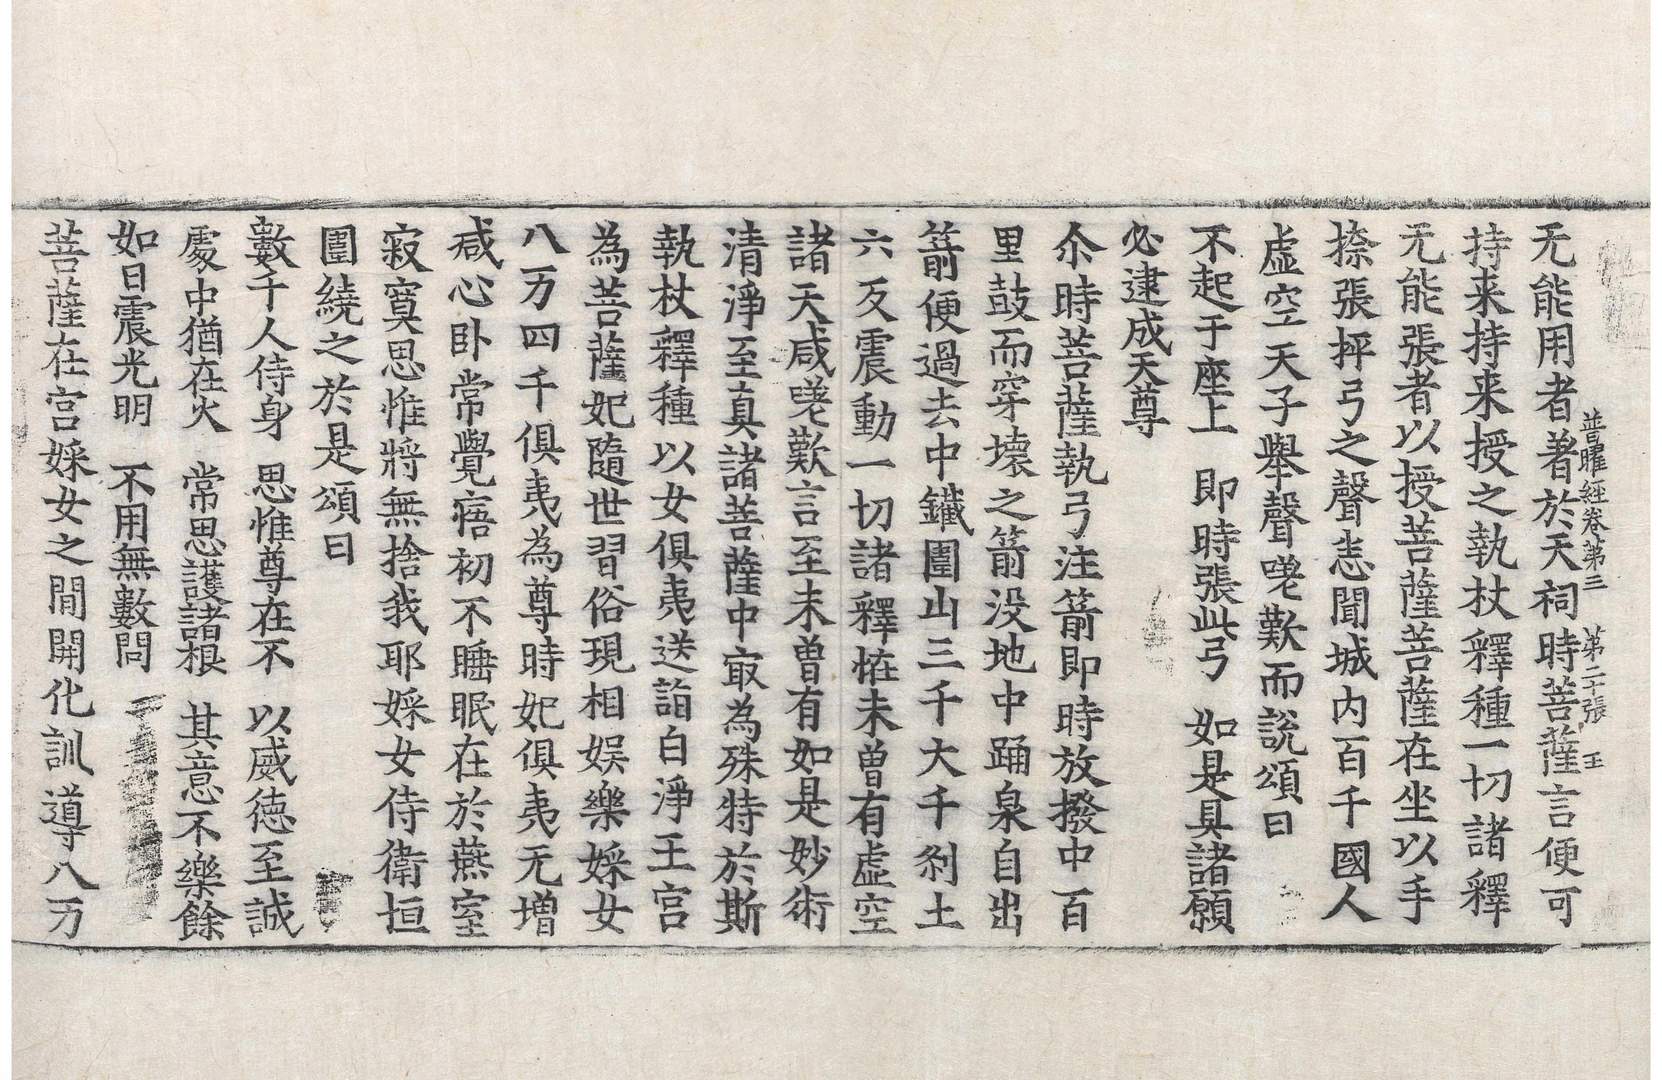 普曜經卷第三　第二十張　王
无能用者著於天祠時菩薩言便可
持来持来授之執杖釋種一切諸釋
无能張者以授菩薩菩薩在坐以手
捺張抨弓之聲悉聞城内百千國人
虛空天子舉聲嗟歎而說頌曰
不起于座上　即時張此弓　如是具諸願
必逮成天尊
尒時菩薩執弓注箭即時放撥中百
里鼓而穿壞之箭没地中踊泉自出
箭便過去中鐵圍山三千大千刹土
六反震動一切諸釋恠未曾有虛空
諸天咸嗟歎言至未曾有如是妙術
清淨至真諸菩薩中㝡為殊特於斯
執杖釋種以女俱夷送詣白淨王宫
為菩薩妃隨世習俗現相娛樂婇女
八万四千俱夷為尊時妃俱夷无增
減心卧常覺寤初不睡眠在於燕室
寂寞思惟將無捨我耶婇女侍衛垣
圍繞之於是頌曰
數千人侍身　思惟尊在不　以威德至誠
處中猶在火　常思護諸根　其意不樂餘
如日震光明　不用無數問
菩薩在宫婇女之間開化訓導八万